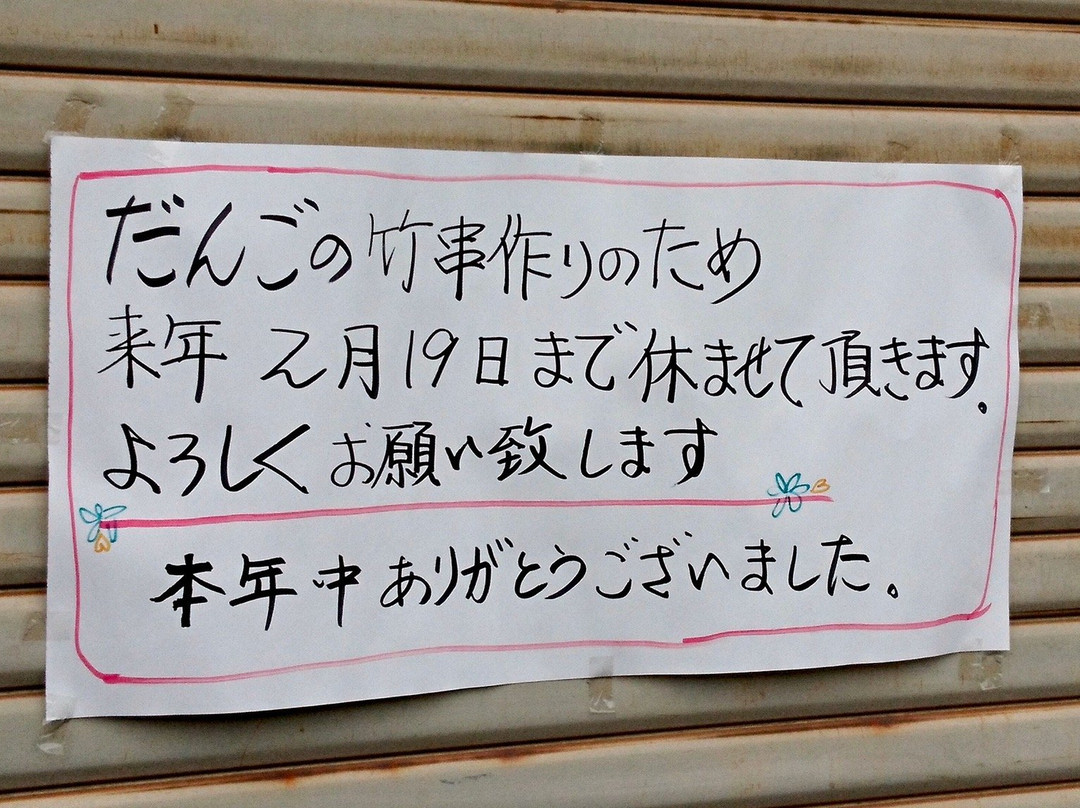 だんごの竹串作りのため
来年 2月19日まで休ませて頂きます。
よろしくお願い致します
本年中ありがとうございました。